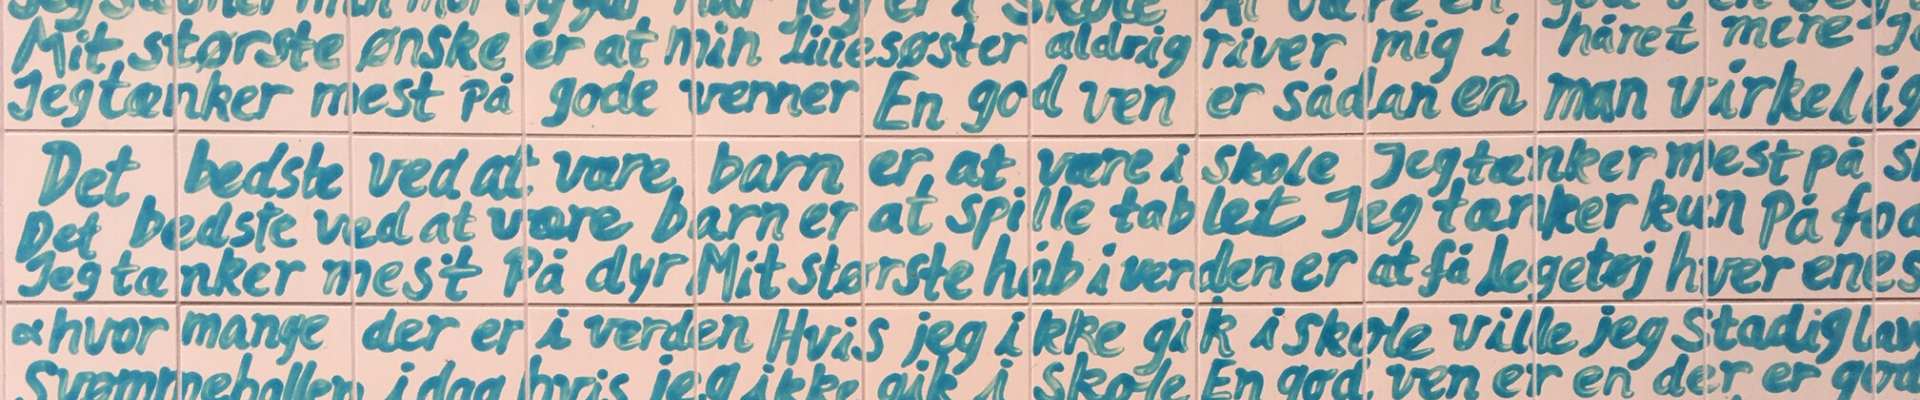 Jeg savner min mor og går når jeg er i skole At være en god ven
Mit største ønske er at min lillesøster aldrig river mig i håret mere Je
Jeg tænker mest på gode venner En god ven er sådan en man virkelig
Det bedste ved at være barn er at være i skole Jeg tænker mest på sk
Det bedste ved at være barn er at spille tablet Jeg tænker kun på fod
Jeg tænker mest på dyr Mit største håb i verden er at få legetøj hver enes
hvor mange der er i verden Hvis jeg ikke gik i skole ville jeg stadig lav
Svømmehallen i dag hvis jeg ikke gik i skole En god ven er en der er god